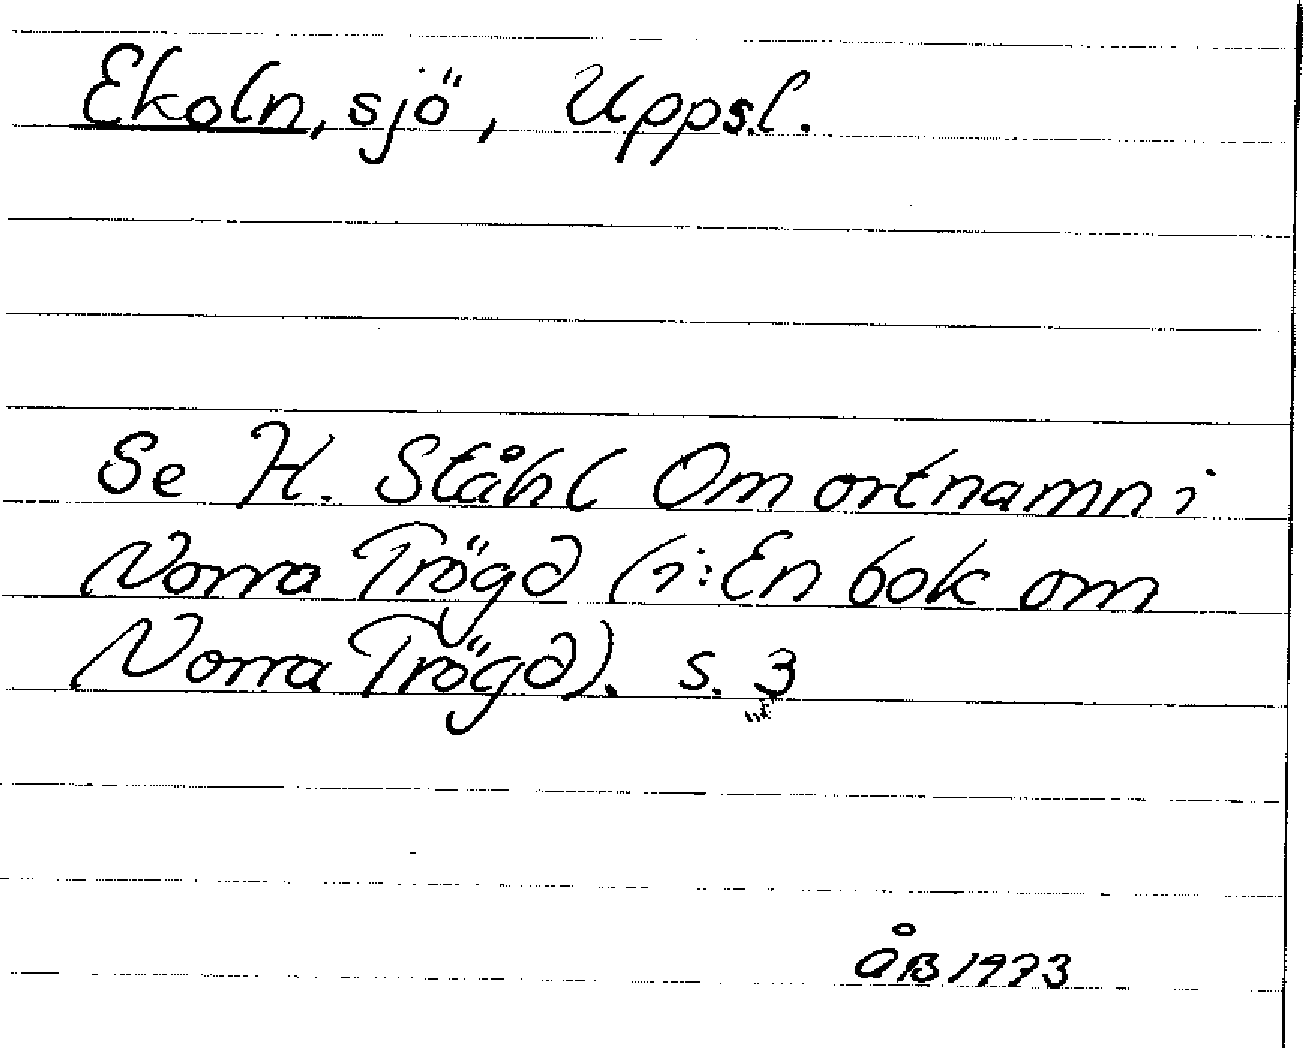 Ekoln, sjö, Uppsl.
Se H. Ståhl Om ortnamn i
Norra Trögd (i: En bok om
Norra Trögd). s. 3
ÅB 1973